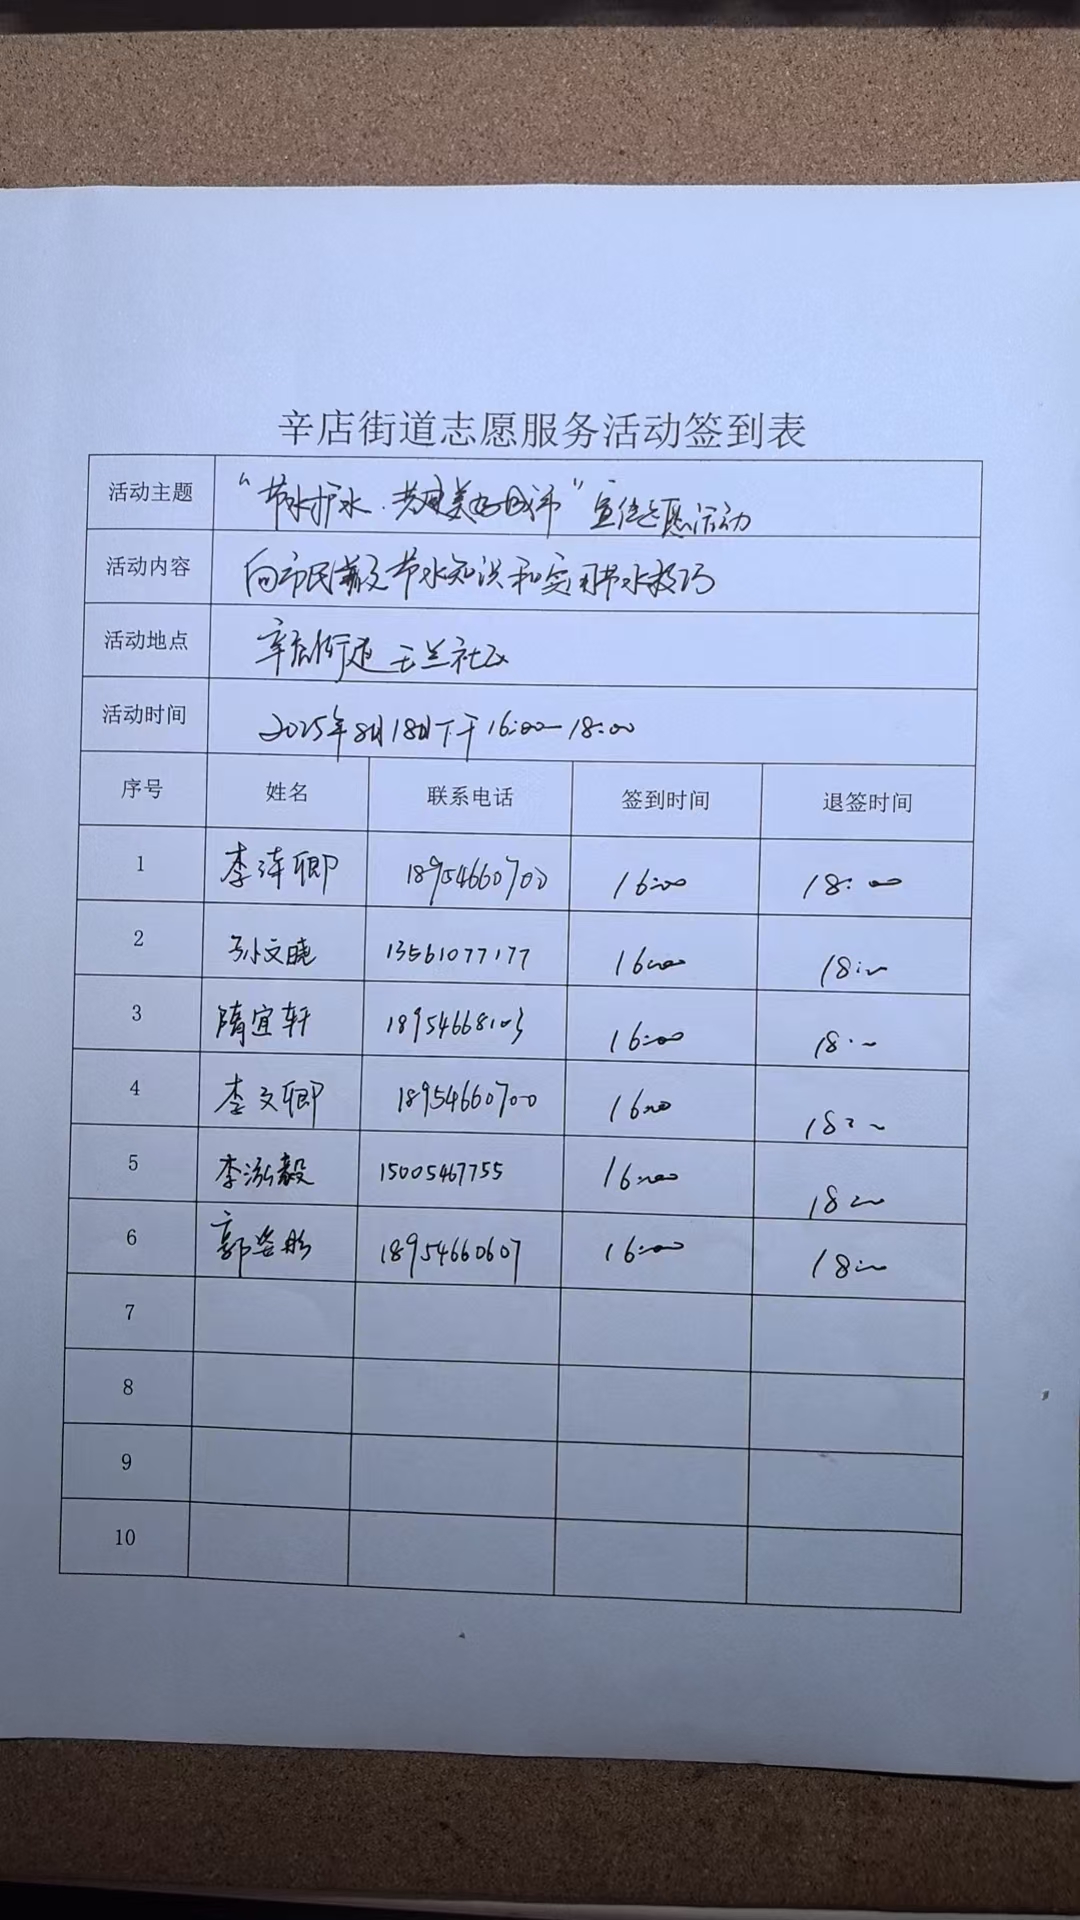 辛店街道志愿服务活动签到表
活动主题 "节水护水·共建美好城市"宣传志愿活动
活动内容 向市民普及节水知识和实用节水技巧
活动地点 辛店街道玉兰社区
活动时间 2025年8月18日下午16:00-18:00
序号 姓名 联系电话 签到时间 退签时间
1 李沣卿 18954660700 16:00 18:00
2 孙文晓 13561077177 16:00 18:00
3 隋宜轩 18954668103 16:00 18:00
4 李文卿 18954660700 16:00 18:00
5 李泓毅 15005467755 16:00 18:00
6 郭姿彤 18954660607 16:00 18:00
7
8
9
10